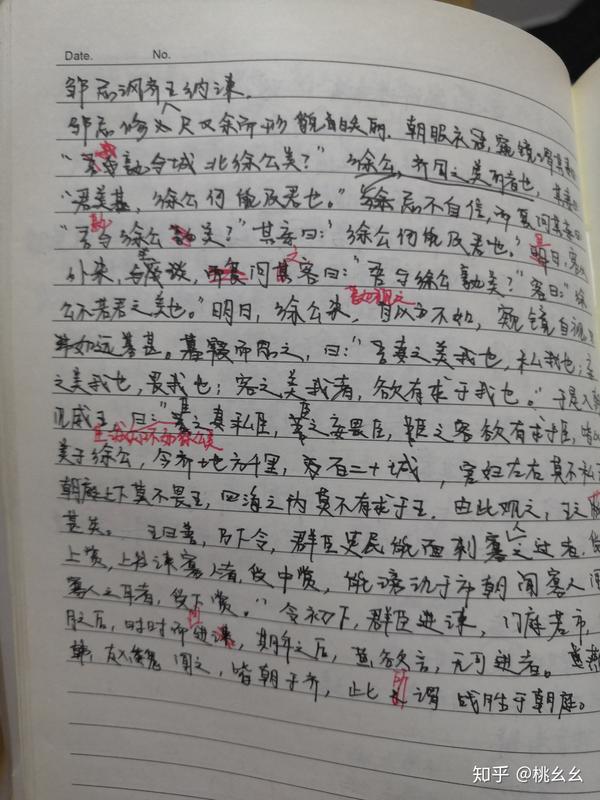 Date. No.
邹忌讽齐王纳谏.
邹忌修八尺又余而形貌自昳丽. 朝服衣冠, 窥镜谓其妻曰
"吾孰令城北徐公美?" 徐公, 齐国之美丽者也, 其妻曰
"君美甚, 徐公何能及君也。" 徐忌不自信, 而复问其妾曰
"吾与徐公孰美?" 其妾曰: "徐公何能及君也。" 明日, 客从
外来, 与座谈, 问之客曰: "吾与徐公孰美?" 客曰: "徐
公不若君之美也。" 明日, 徐公来, 孰视之 自以为不如, 窥镜自视,
弗如远甚甚。暮寝而思之, 曰: "吾妻之美我也, 私我也; 妾
之美我也, 畏我也; 客之美我者, 欲有求于我也。" 于是入朝
见威王, 曰: 臣诚知不如徐公美 臣之妻私臣, 臣之妾畏臣, 臣之客欲有求于臣, 皆以
美于徐公, 今齐地方千里, 百二十城, 宫妇左右莫不私
朝庭上下莫不畏王, 四海之内莫不有求于王. 由此观之, 王之蔽
甚矣。王曰善, 乃下令, 群臣吏民能面刺寡人之过者, 受
上赏, 上书谏寡人者, 受中赏, 能谤讥于市朝闻寡人
寡人之耳者, 受下赏。" 令初下, 群臣进谏, 门庭若市,
月之后, 时时而进谏, 期年之后, 虽欲言, 无可进者。燕
韩, 赵, 魏 闻之, 皆朝于齐, 此所谓 战胜于朝庭。
知乎 @桃幺幺